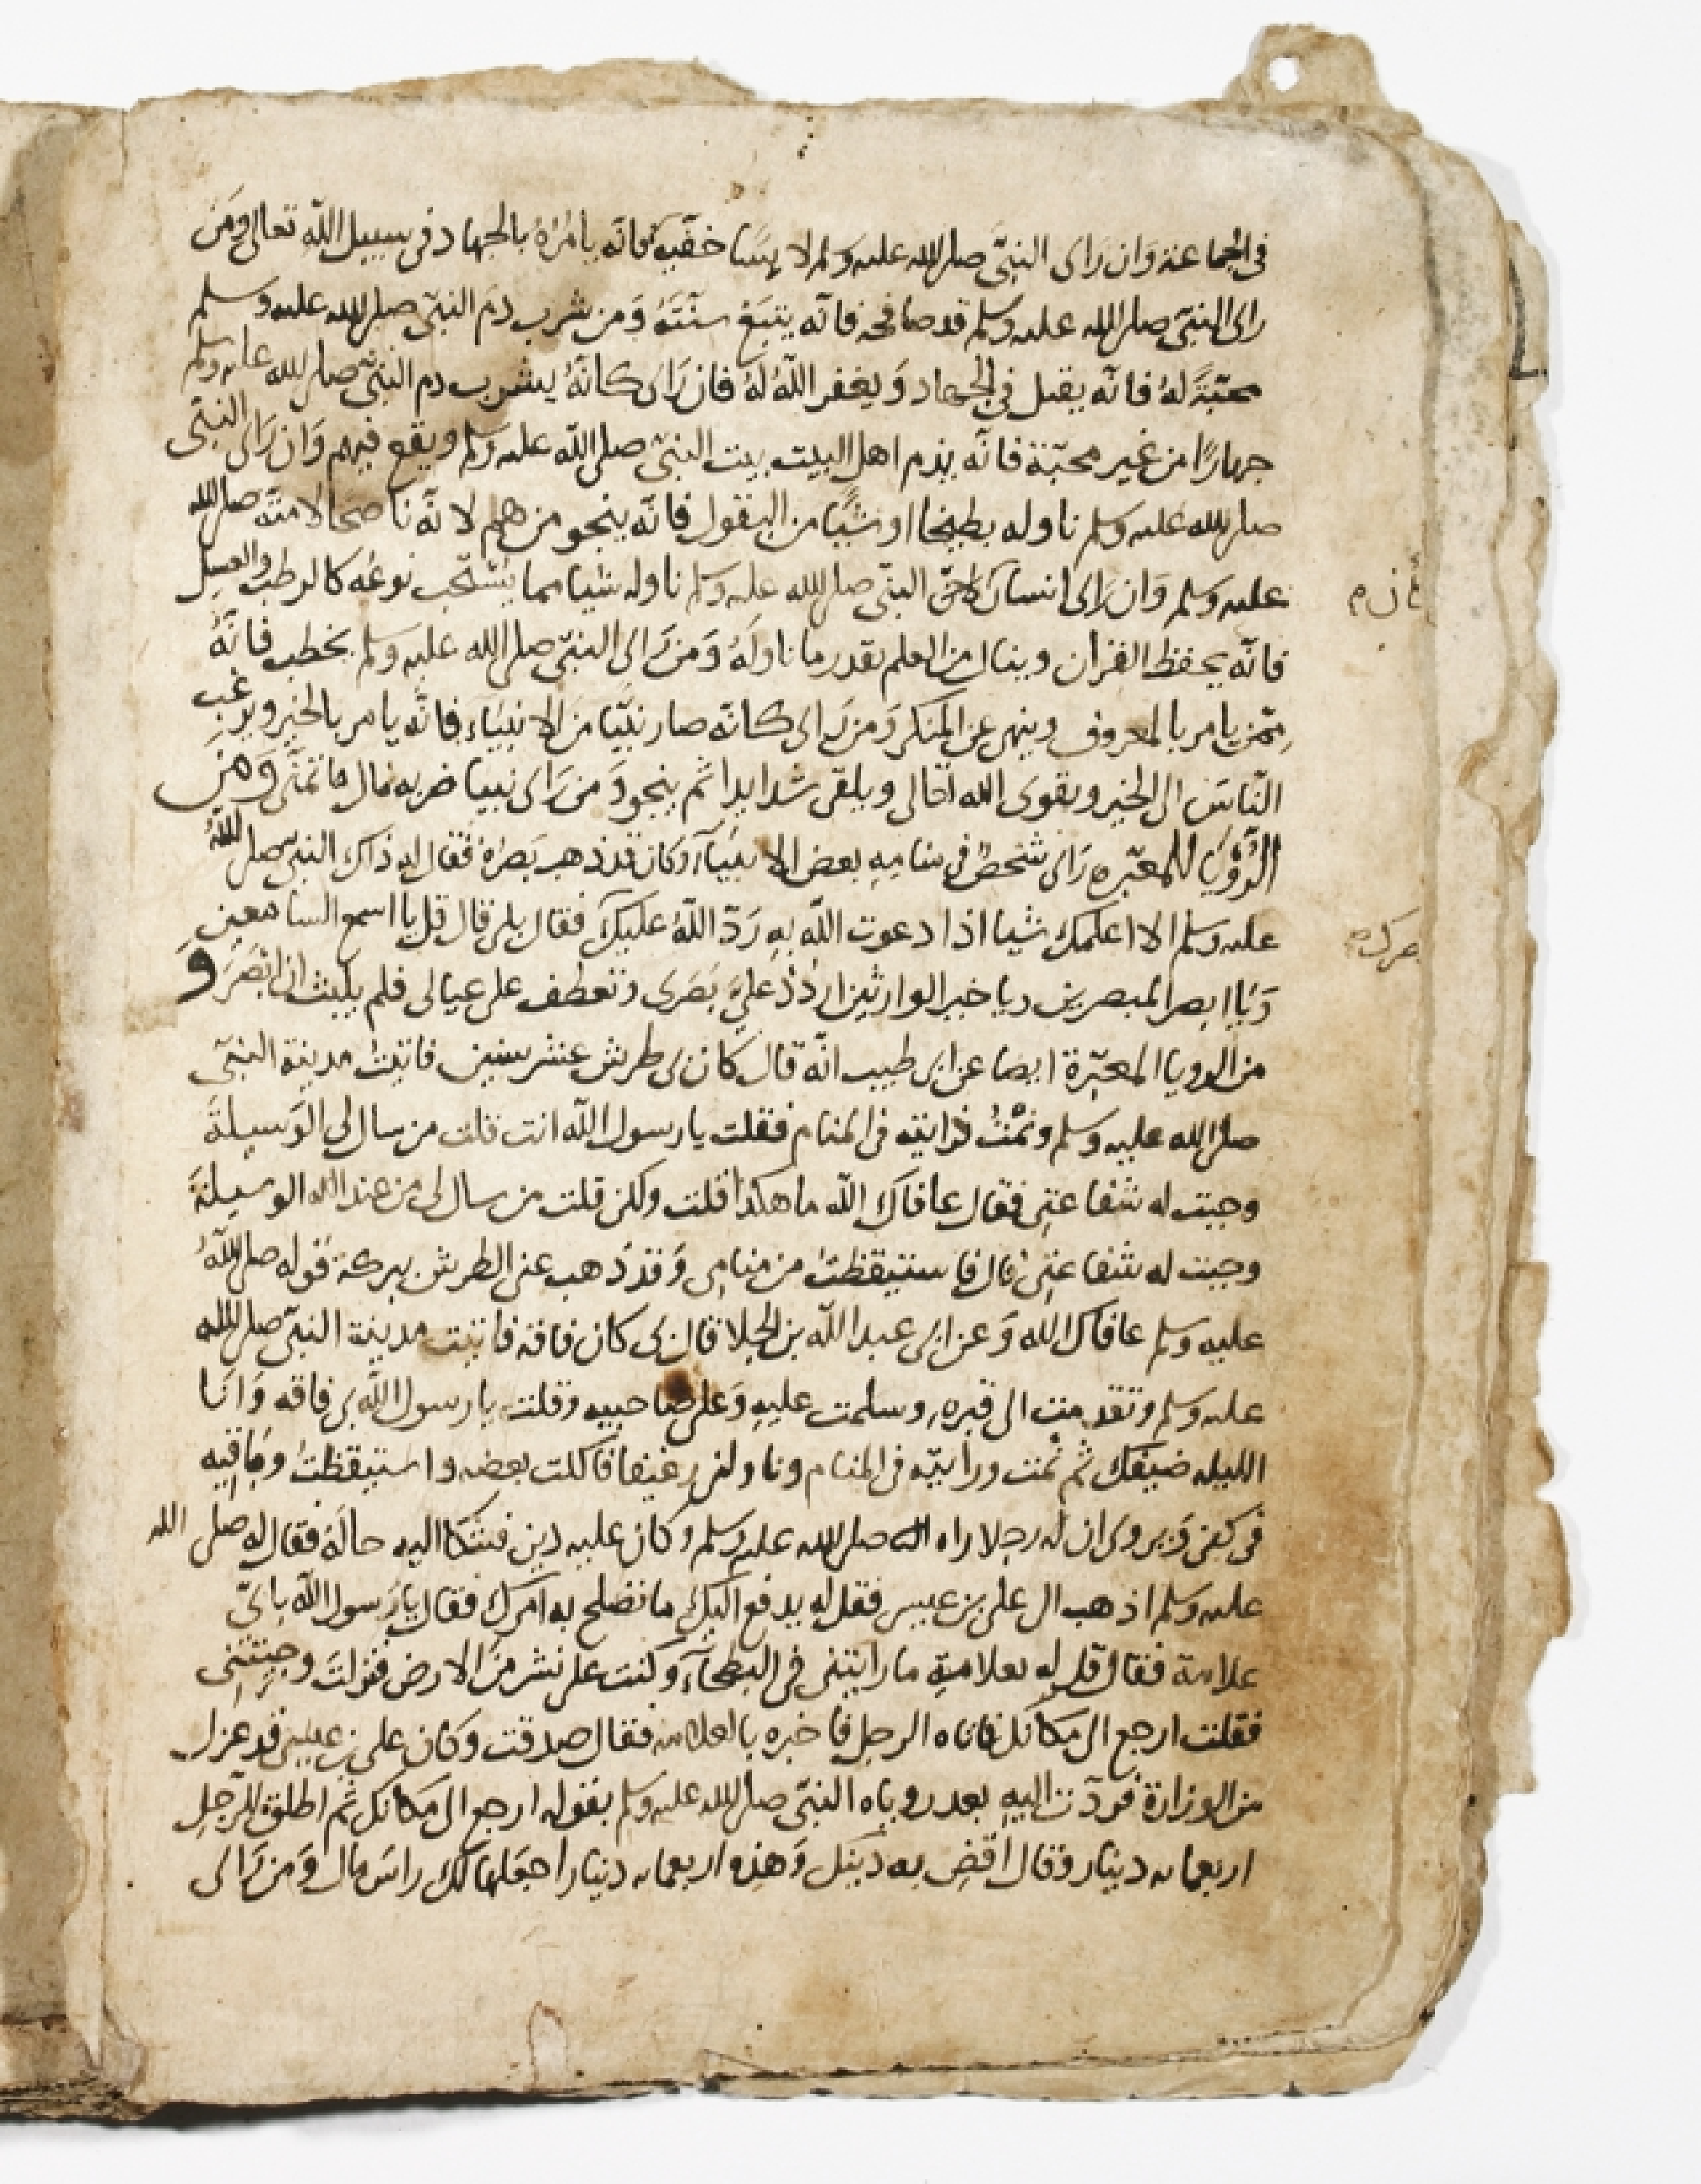 في الجماعة وَان رَاى النبيَّ صلى الله عليه وسلم لابسًا خفّيه فانّه يامُرُهُ بالجهاد في سبيل الله تعالى وَمَن
راى النبيّ صلى الله عليه وسلم قد صافحه فانّه يتبَع سنّتَهُ وَمن شرب دَم النبيّ صلى الله عليه وسلم
محبّةً لهُ فانّه يقتل في الجهاد وَيغفر اللهُ لهُ فان رَاى كانّهُ يشرب دم النبيّ صلى الله عليه وسلم
جهارًا من غير محبّة فانّه يذم اهل البيت بيت النبيّ صلى الله عليه وسلم ويقع فيهم وَان رَاى النبيّ
صلى الله عليه وسلم ناوله بطيخا او شيًا من البقول فانّه ينجو من هم لانّه ناصحا لامته صلى الله
عليه وسلم وَان رَاى انسان انّ النبيّ صلى الله عليه وسلم ناوله شيا مما يستحب نوعُه كالرطب والعسل
فانّه يحفظ القران وينال من العلم بقدر ما ناولَهُ وَمَن رَاى النبيّ صلى الله عليه وسلم يخطب فانّهُ
ممّن يامر بالمعروف وينهى عن المنكر وَمن رَاى كانّه صار نبيّا منَ الانبيَاء فانّه يامر بالخير ويرغب
النّاسَ الى الخير وبقوى الله تعالى ويلقى شدايدا ثم ينجو وَمن رَاى نبيا ضربه نال ما تمنّى وَمن
الرُّؤيَا المعبّره رَاى شخصٌ في منامِهِ بعض الانبيَآء وكان قد ذهب بَصَرُهُ فقال له ذاك النبيّ صلى اللهُ
عليه وسلم الا اعلمك شيا اذا دعوت الله به رَدّ اللهُ عليكَ فقال بلى قال قل يا اسمع السامعين
وَيَا ابصر المبصرين ويا خير الوارثين ارْدُدْ عليَّ بَصَرى وتعطف على عيالى فلم يلبث ان ابْصَرَ وَ
من الرويا المعبّرة ايضا عن ابى طبيب انّه قال كان بى طرش عشر سنين فاتيتُ مدينة النبيّ
صلى الله عليه وسلم ونمْتُ فرايته في المنام فقلت يا رسول الله انت قلت من سال لى الوَسيلةَ
وجبت له شفاعتى فقال عافاك الله ما هكذا قلت ولكن قلت من سال لى من عند الله الوسيلةَ
وجبت له شفاعتى قال فاستيقظتُ من منامى وَقد ذهب عنى الطرش ببركة قوله صلى اللهُ
عليه وسلم عافاك الله وَعن ابى عبد الله بن الجلا قال بى كان فاقه فاتيت مدينة النبيّ صلى الله
عليه وسلم وتقدمت الى قبره وسلمت عليهِ وَعلى صاحبيه وقلت يا رسول الله بى فاقه وَانَا
الليله ضيفك ثم نمت ورايته فى المنام وناولنى رغيفا فاكلت بعضه واستيقظتُ وبَاقيه
فى كفى وَيروى ان له رجلا راه صلى الله عليه وسلم وكان عليه دين فشكا اليه حالهُ فقال له صلى الله
عليه وسلم اذهب الى على بن عيسى فقل له يدفع اليكَ ما تصلح به امرك فقال يا رَسول الله باىّ
علامة فقال قل له بعلامةِ ما رايتنى فى البطحآء وكنت على نشز منَ الارض فنزلتَ وجيتنى
فقلت ارجع الى مكانك فاتاه الرجل فاخبره بالعلامه فقال صدقت وكان على بن عيسى قد عزل
من الوزارة فردّت اليهِ بعد روياه النبيّ صلى الله عليه وسلم بقوله ارجع الى مكانك ثم اطلق للرّجلِ
اربعمايه دينار وقال اقضِ به دَينك وَهذه اربعمايه دينار اجعَلها لك راسَ مال وَمن رَاى